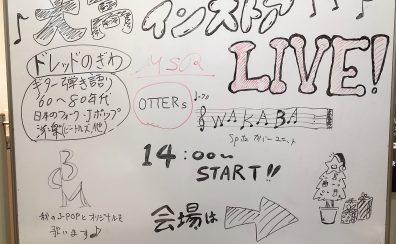 インストア
LIVE!
ドレッドのぎわ
ギター弾き語り
60〜80年代
日本のフォーク・Jポップ
洋楽(ビートルズ他)
M.S.R
OTTERs
WAKABA
スピッツ カバーユニット
14:00〜
START!!
BM
秋のJ-POPとオリジナルを
歌います♪
会場は